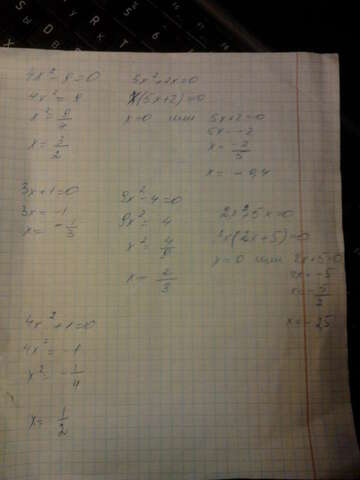 4x²-9=0
4x²=9
x²=9/4
x=3/2
5x²+2x=0
x(5x+2)=0
x=0 или 5x+2=0
5x=-2
x=-2/5
x=-0,4
3x+1=0
3x=-1
x=-1/3
9x²-4=0
9x²=4
x²=4/9
x=2/3
2x²+5x=0
x(2x+5)=0
x=0 или 2x+5=0
2x=-5
x=-5/2
x=-25
4x²+1=0
4x²=-1
x²=-1/4
x=1/2